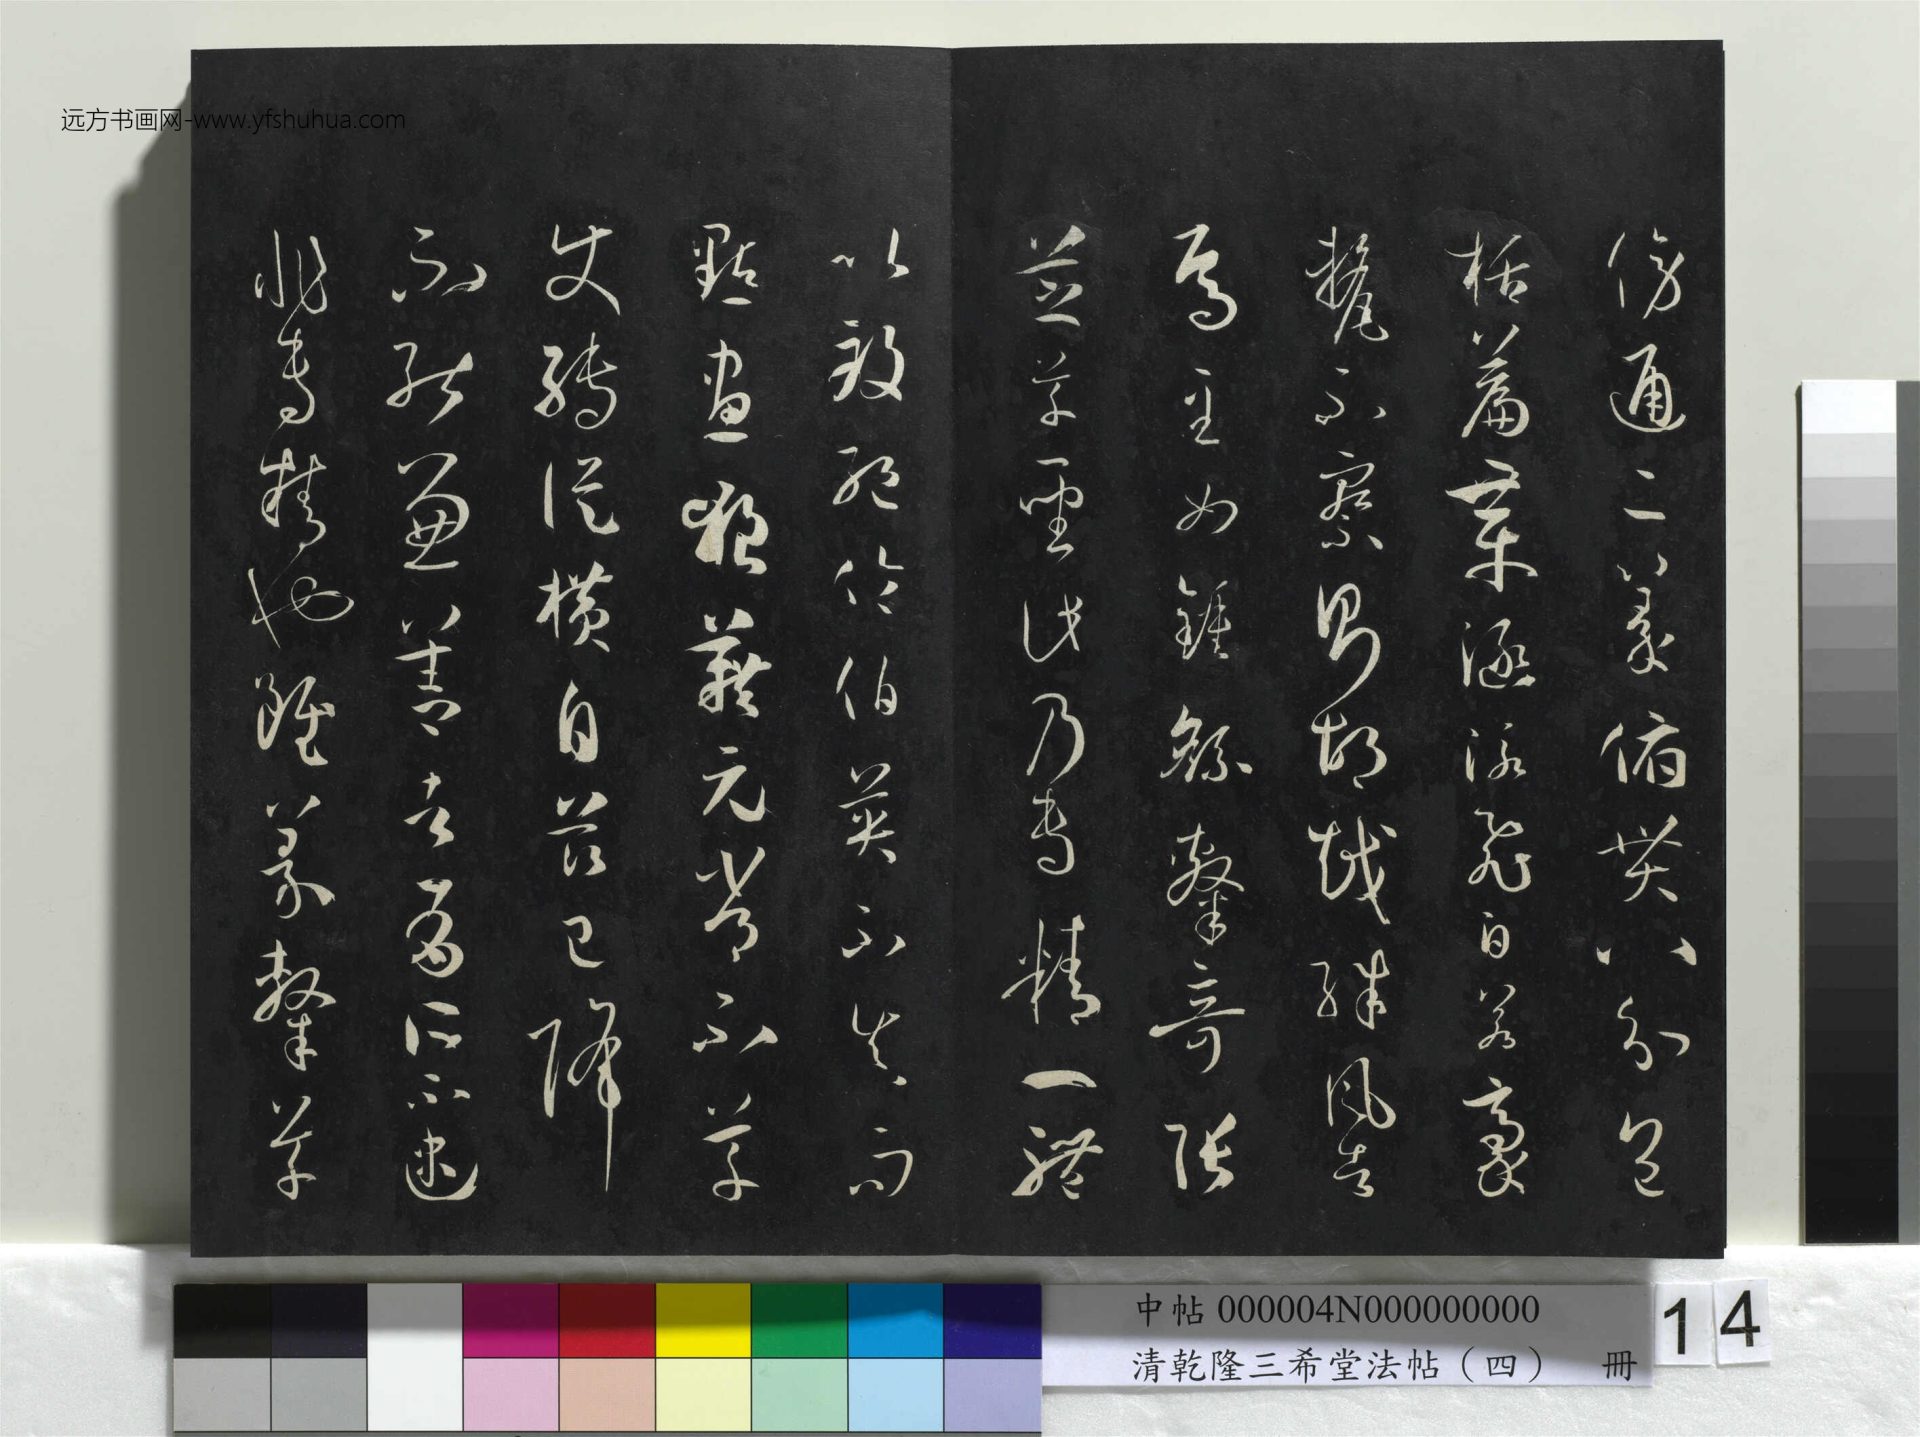 傍通二篆俯貫八分包
括篇章涵泳飛白若豪
釐不察則胡越殊風者
焉至如鍾繇隸奇張
芝草聖此乃專精一體
以致絕倫伯英不真而
點畫狼藉元常不草
使轉縱橫自茲已降
不能兼善者有所不逮
非專精也雖篆隸草
远方书画网-www.yfshuhua.com
中帖 000004N000000000
清乾隆三希堂法帖（四） 冊
14